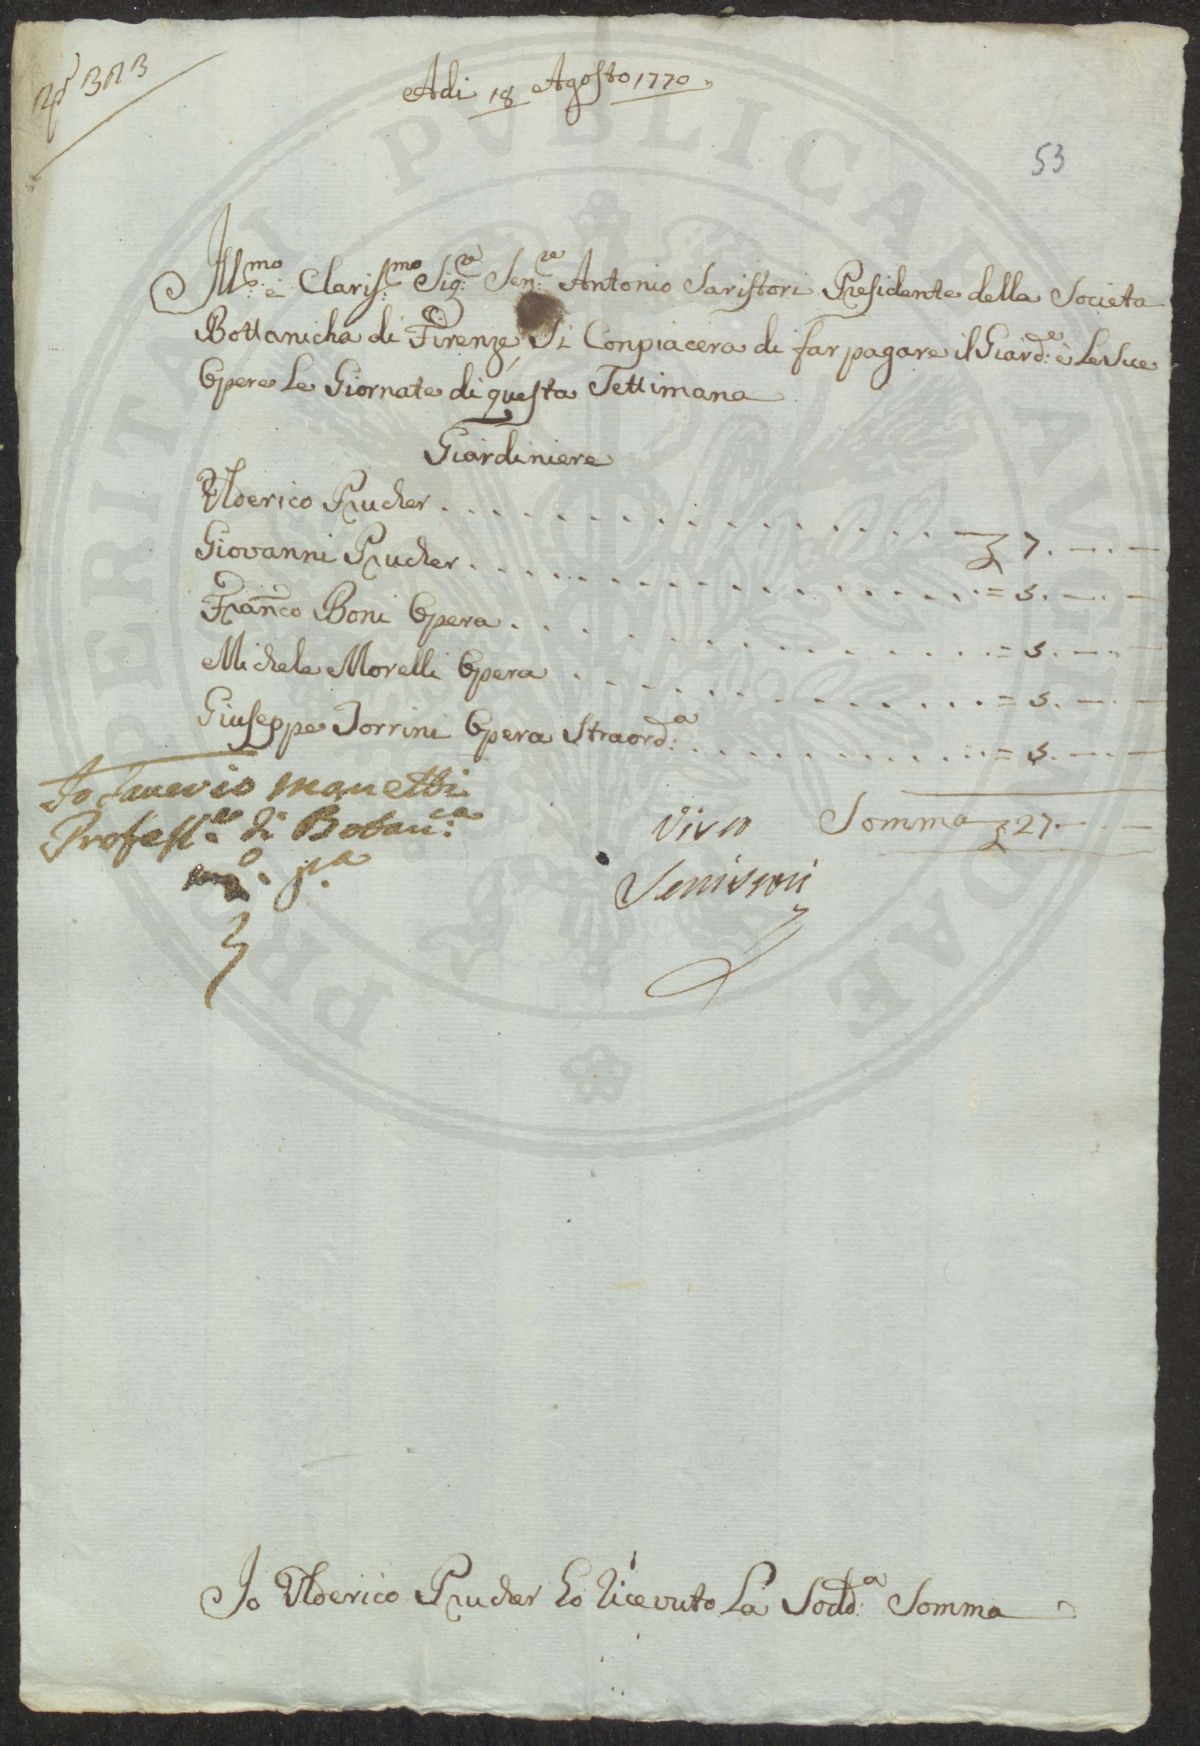 Adi 18 Agosto 1770
53
Ill.mo e Clariss.mo Sig.re Sen.re Antonio Saristori Presidente della Societa
Bottanicha di Firenze Si Conpiacera di far pagare il Giard.e è Le Sue
Opere Le Giornate di questa Settimana
Giardiniere
Ulderico Prucker 7.—.—
Giovanni Prucker = 5.—.—
Fran.co Boni Opera = 5.—.—
Michele Morelli Opera = 5.—.—
Giuseppe Jorrini Opera Straord.a = 5.—.—
Somma 27.—.—
Io Saverio Manetti
Profess.re di Botan.ca
m.o p.a
Visto
Io Ulderico Prucker ho Ricevuto La Sodd.a Somma
PERITALI PVBLICAE AVCTAE